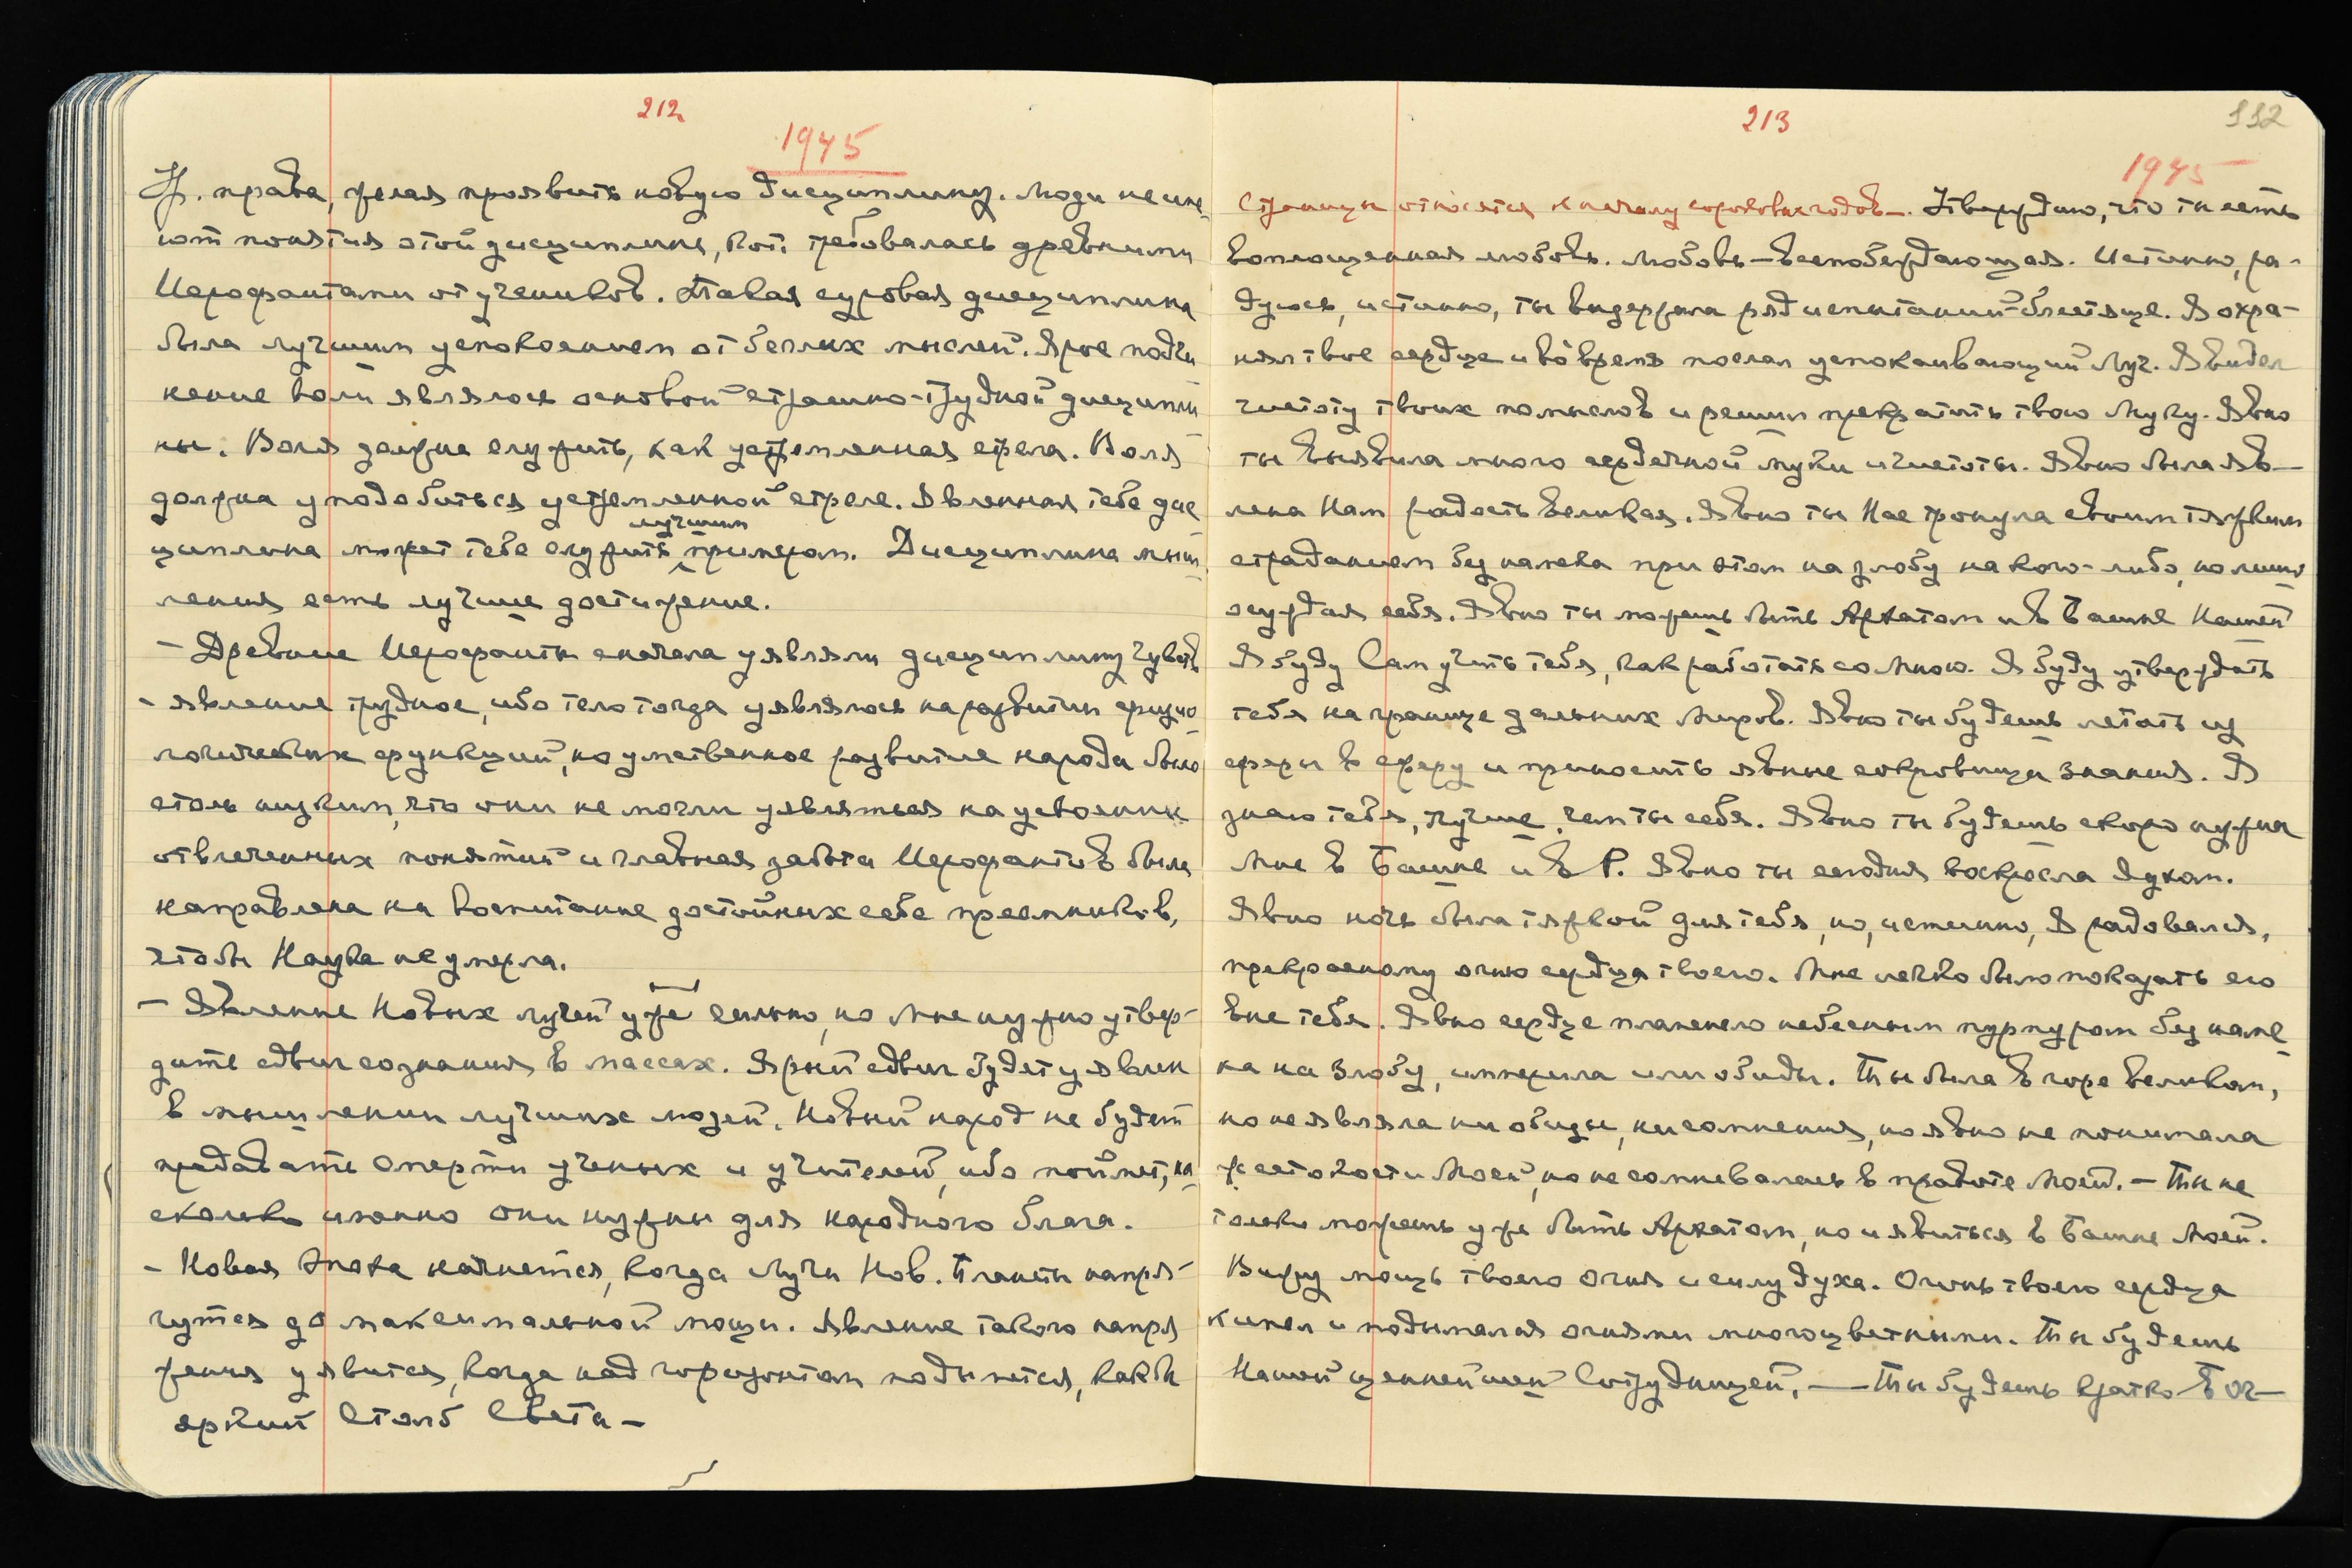 212
1945
Ур. права, желая проявить новую дисциплину. Люди не име-
ют понятия этой дисциплине, кот. требовалась древними
Иерофантами от учеников. Такая суровая дисциплина
была лучшим успокоением от беглых мыслей. Ярое подчи
нение воли являлось основой страшно-трудной дисципли
ны. Воля должна служить, как устремленная стрела. Воля
должна уподобиться устремленной стреле. Явленная тебе дис
циплина может тебе служить лучшим примером. Дисциплина мыш
ления есть лучшее достижение.
— Древние Иерофанты сначала являли дисциплину чувств
- явление трудное, ибо тело тогда уявлялось на развитии физио
логических функций, но умственное развитие народа было
столь низким, что они не могли уявляться на усвоении
отвлеченных понятий и главная забота Иерофантов была
направлена на воспитание достойных себе преемников,
чтобы Наука не умерла.
— Явление Новых лучей уже сильно, но Мне нужно утвер-
дить сдвиг сознания в массах. Ярый сдвиг будет уявлен
в мышлении лучших людей. Новый народ не будет
предавать смерти ученых и учителей, ибо поймет, на
сколько именно они нужны для народного блага.
- Новая Эпоха начнется, когда Лучи Нов. Планеты напря-
гутся до максимальной мощи. Явление такого напря
жения уявится, когда над горизонтом подымется, как бы
яркий Столб Света —
213
112
1945
Страницы относятся к началу сороковых годов —. Утверждаю, что ты есть
воплощенная любовь. Любовь — всепобеждающая. Истинно, ра-
дуюсь, истинно, ты выдержала ряд испытаний блестяще. Я охра-
нял твое сердце и во время послал успокаивающий Луч. Я видел
чистоту твоих помыслов и решил прекратить твою Муку. Явно
ты выявила много сердечной муки и чистоты. Явно была яв—
лена Нам радость великая. Явно ты Нас тронула своим тяжким
страданием без намека при этом на злобу на кого-либо, но лишь
осуждая себя. Явно ты можешь быть Архатом и в Башне Нашей
Я буду Сам учить тебя, как работать со Мною. Я буду утверждать
тебя на границе дальних Миров. Явно ты будешь летать из
сферы в сферу и приносить явные сокровища знания. Я
знаю тебя, лучше, чем ты себя. Явно ты будешь скоро нужна
Мне в Башне и в Р. Явно ты сегодня воскресла духом.
Явно ночь была тяжкой для тебя, но, истинно, Я радовался,
прекрасному огню сердца твоего. Мне легко было показать его
вне тебя. Явно сердце пламенело небесным пурпуром без наме
ка на злобу, империла или обиды. Ты была в горе великом,
но не являла ни обиды, ни сомнения, но явно не понимала
жестокости Моей, но не сомневалась в правоте Моей. — Ты не
только можешь уже быть Архатом, но и явиться в Башне Моей.
Вижу мощь твоего Огня и силу духа. Огонь твоего сердца
кипел и подымался огнями многоцветными. Ты будешь
Нашей ценнейшей Сотрудницей, — Ты будешь кратко в ог—